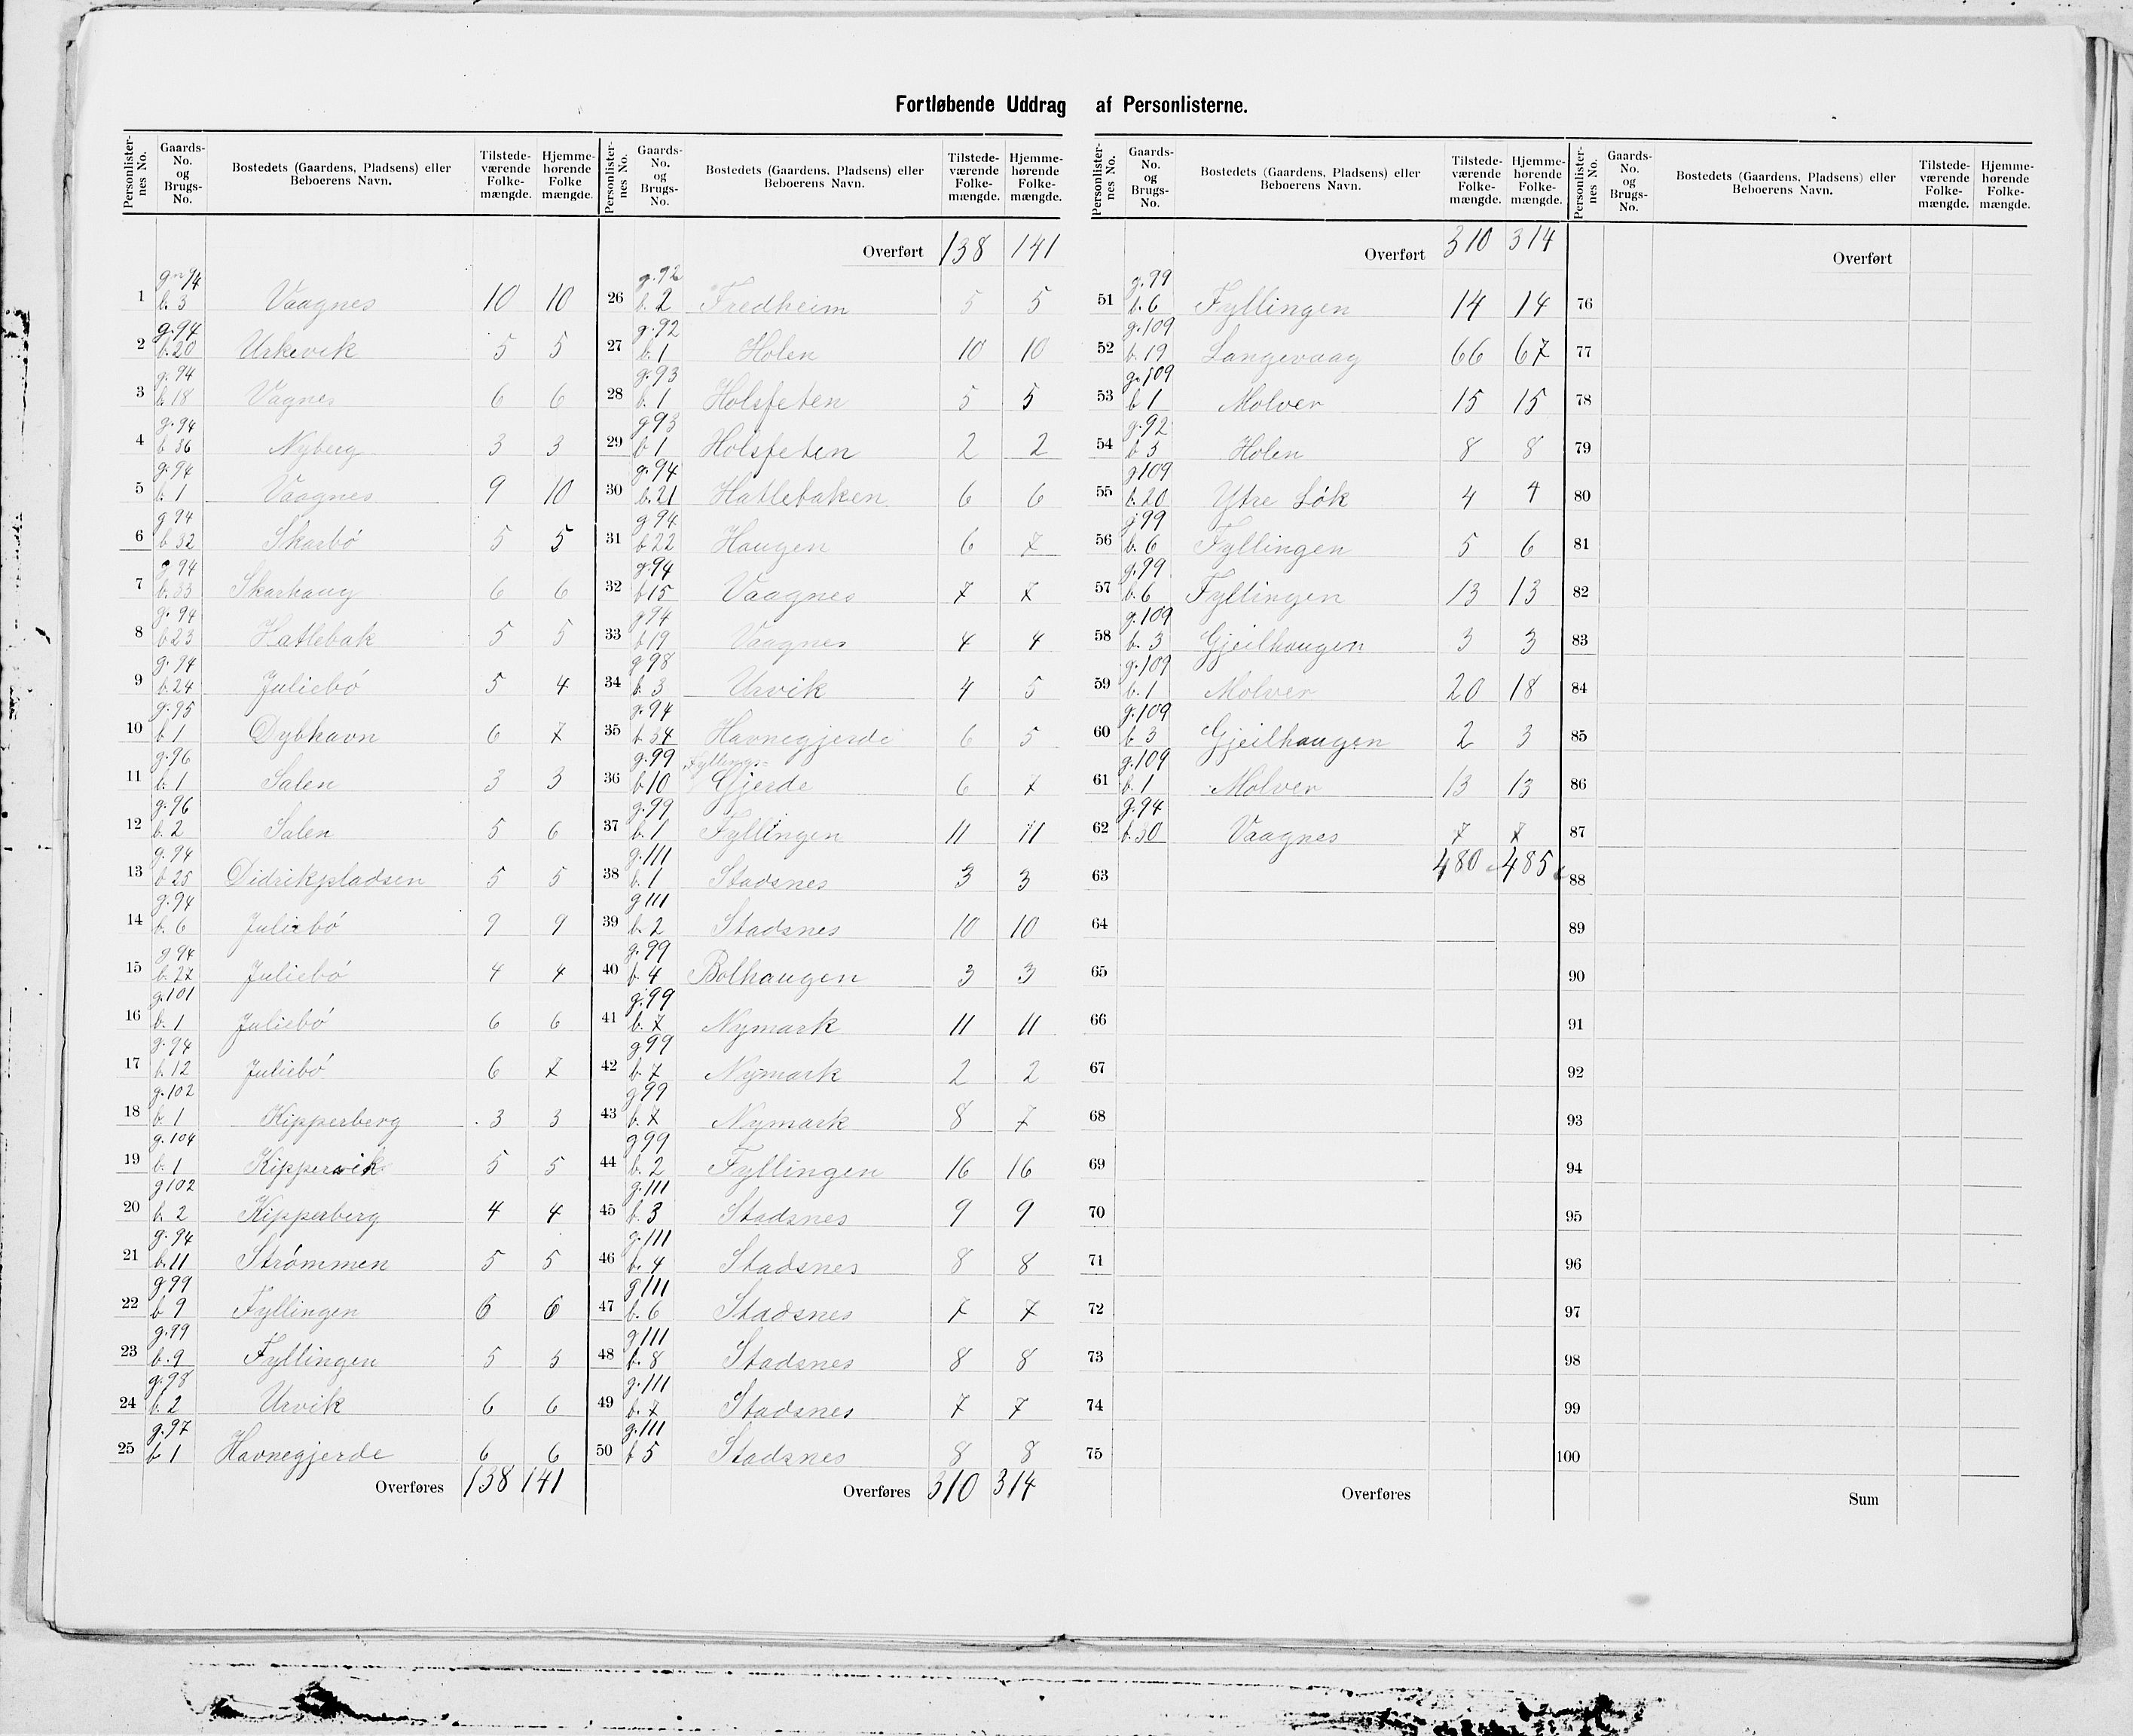 Fortløbende Uddrag af Personlisterne.
Personlisternes No. | Gaards-No. og Brugs-No. | Bostedets (Gaardens, Pladsens) eller Beboerens Navn. | Tilstedeværende Folkemængde. | Hjemmehørende Folkemængde.
1 | g. 94 b. 3 | Vaagnes | 10 | 10
2 | g. 94 b. 20 | Urkevik | 5 | 5
3 | g. 94 b. 18 | Vagnes | 6 | 6
4 | g. 94 b. 36 | Nyberg | 3 | 3
5 | g. 94 b. 1 | Vaagnes | 9 | 10
6 | g 94 b 32 | Skarbö | 5 | 5
7 | g 94 b. 33 | Skarhaug | 6 | 6
8 | g. 94 b 23 | Hatlebak | 5 | 5
9 | g. 94 b. 24 | Juliebö | 5 | 4
10 | g. 95 b 1 | Dybhavn | 6 | 7
11 | g. 96 b. 1 | Salen | 3 | 3
12 | g. 96 b. 2 | Salen | 5 | 6
13 | g. 94 b 25 | Didrikpladsen | 5 | 5
14 | g. 94 b. 6 | Juliebö | 9 | 9
15 | g 94 b. 27 | Juliebö | 4 | 4
16 | g. 101 b. 1 | Juliebö | 6 | 6
17 | g. 94 b. 12 | Juliebö | 6 | 7
18 | g. 102 b. 1 | Kipperberg | 3 | 3
19 | g. 104 b. 1 | Kippervik | 5 | 5
20 | g 102 b. 2 | Kipperberg | 4 | 4
21 | g. 94 b. 11 | Strömmen | 5 | 5
22 | g 99 b 9 | Fyllingen | 6 | 6
23 | g. 99 b. 9 | Fyllingen | 5 | 5
24 | g. 98 b. 2 | Urvik | 6 | 6
25 | g. 97 b 1 | Havnegjerde | 6 | 6
Overføres 138 141
Personlisternes No. | Gaards-No. og Brugs-No. | Bostedets (Gaardens, Pladsens) eller Beboerens Navn. | Tilstedeværende Folkemængde. | Hjemmehørende Folkemængde.
Overført 138 141
26 | g. 92 b. 2 | Fredheim | 5 | 5
27 | g. 92 b. 1 | Holen | 10 | 10
28 | g. 93 b. 1 | Holsfeten | 5 | 5
29 | g 93 b 1 | Holsfeten | 2 | 2
30 | g. 94 b. 21 | Hatlebaken | 6 | 6
31 | g 94 b 22 | Haugen | 6 | 7
32 | g. 94 b 15 | Vaagnes | 7 | 7
33 | g 94 b 19 | Vaagnes | 4 | 4
34 | g 98 b. 3 | Urvik | 4 | 5
35 | g. 94 b. 34 | Havnegjerde | 6 | 5
36 | g. 99 b 10 | Fyllings- Gjerde | 6 | 7
37 | g. 99 b. 1 | Fyllingen | 11 | 11
38 | g. 111 b. 1 | Stadsnes | 3 | 3
39 | g 111 b. 2 | Stadsnes | 10 | 10
40 | g. 99 b. 4 | Bolhaugen | 3 | 3
41 | g. 99 b. 7 | Nymark | 11 | 11
42 | g 99 b. 7 | Nymark | 2 | 2
43 | g 99 b. 7 | Nymark | 8 | 7
44 | g 99 b. 2 | Fyllingen | 16 | 16
45 | g. 111 b. 3 | Stadsnes | 9 | 9
46 | g. 111 b. 4 | Stadsnes | 8 | 8
47 | g 111 b. 6 | Stadsnes | 7 | 7
48 | g 111 b. 8 | Stadsnes | 8 | 8
49 | g. 111 b. 7 | Stadsnes | 7 | 7
50 | g. 111 b 5 | Stadsnes | 8 | 8
Overføres 310 314
Personlisternes No. | Gaards-No. og Brugs-No. | Bostedets (Gaardens, Pladsens) eller Beboerens Navn. | Tilstedeværende Folkemængde. | Hjemmehørende Folkemængde.
Overført 310 314
51 | g. 99 b. 6 | Fyllingen | 14 | 14
52 | g. 109 b. 19 | Langevaag | 66 | 67
53 | g. 109 b 1 | Molver | 15 | 15
54 | g. 92 b 3 | Holen | 8 | 8
55 | g 109 b. 20 | Ytre Lök | 4 | 4
56 | g 99 b. 6 | Fyllingen | 5 | 6
57 | g. 99 b. 6 | Fyllingen | 13 | 13
58 | g. 109 b. 3 | Gjeilhaugen | 3 | 3
59 | g. 109 b. 1 | Molver | 20 | 18
60 | g. 109 b 3 | Gjeilhaugen | 2 | 3
61 | g. 109 b. 1 | Molver | 13 | 13
62 | g. 94 b. 30 | Vaagnes | 7 | 7
63 480 485
64
65
66
67
68
69
70
71
72
73
74
75
Overføres
Personlisternes No. | Gaards-No. og Brugs-No. | Bostedets (Gaardens, Pladsens) eller Beboerens Navn. | Tilstedeværende Folkemængde. | Hjemmehørende Folkemængde.
Overført
76
77
78
79
80
81
82
83
84
85
86
87
88
89
90
91
92
93
94
95
96
97
98
99
100
Sum